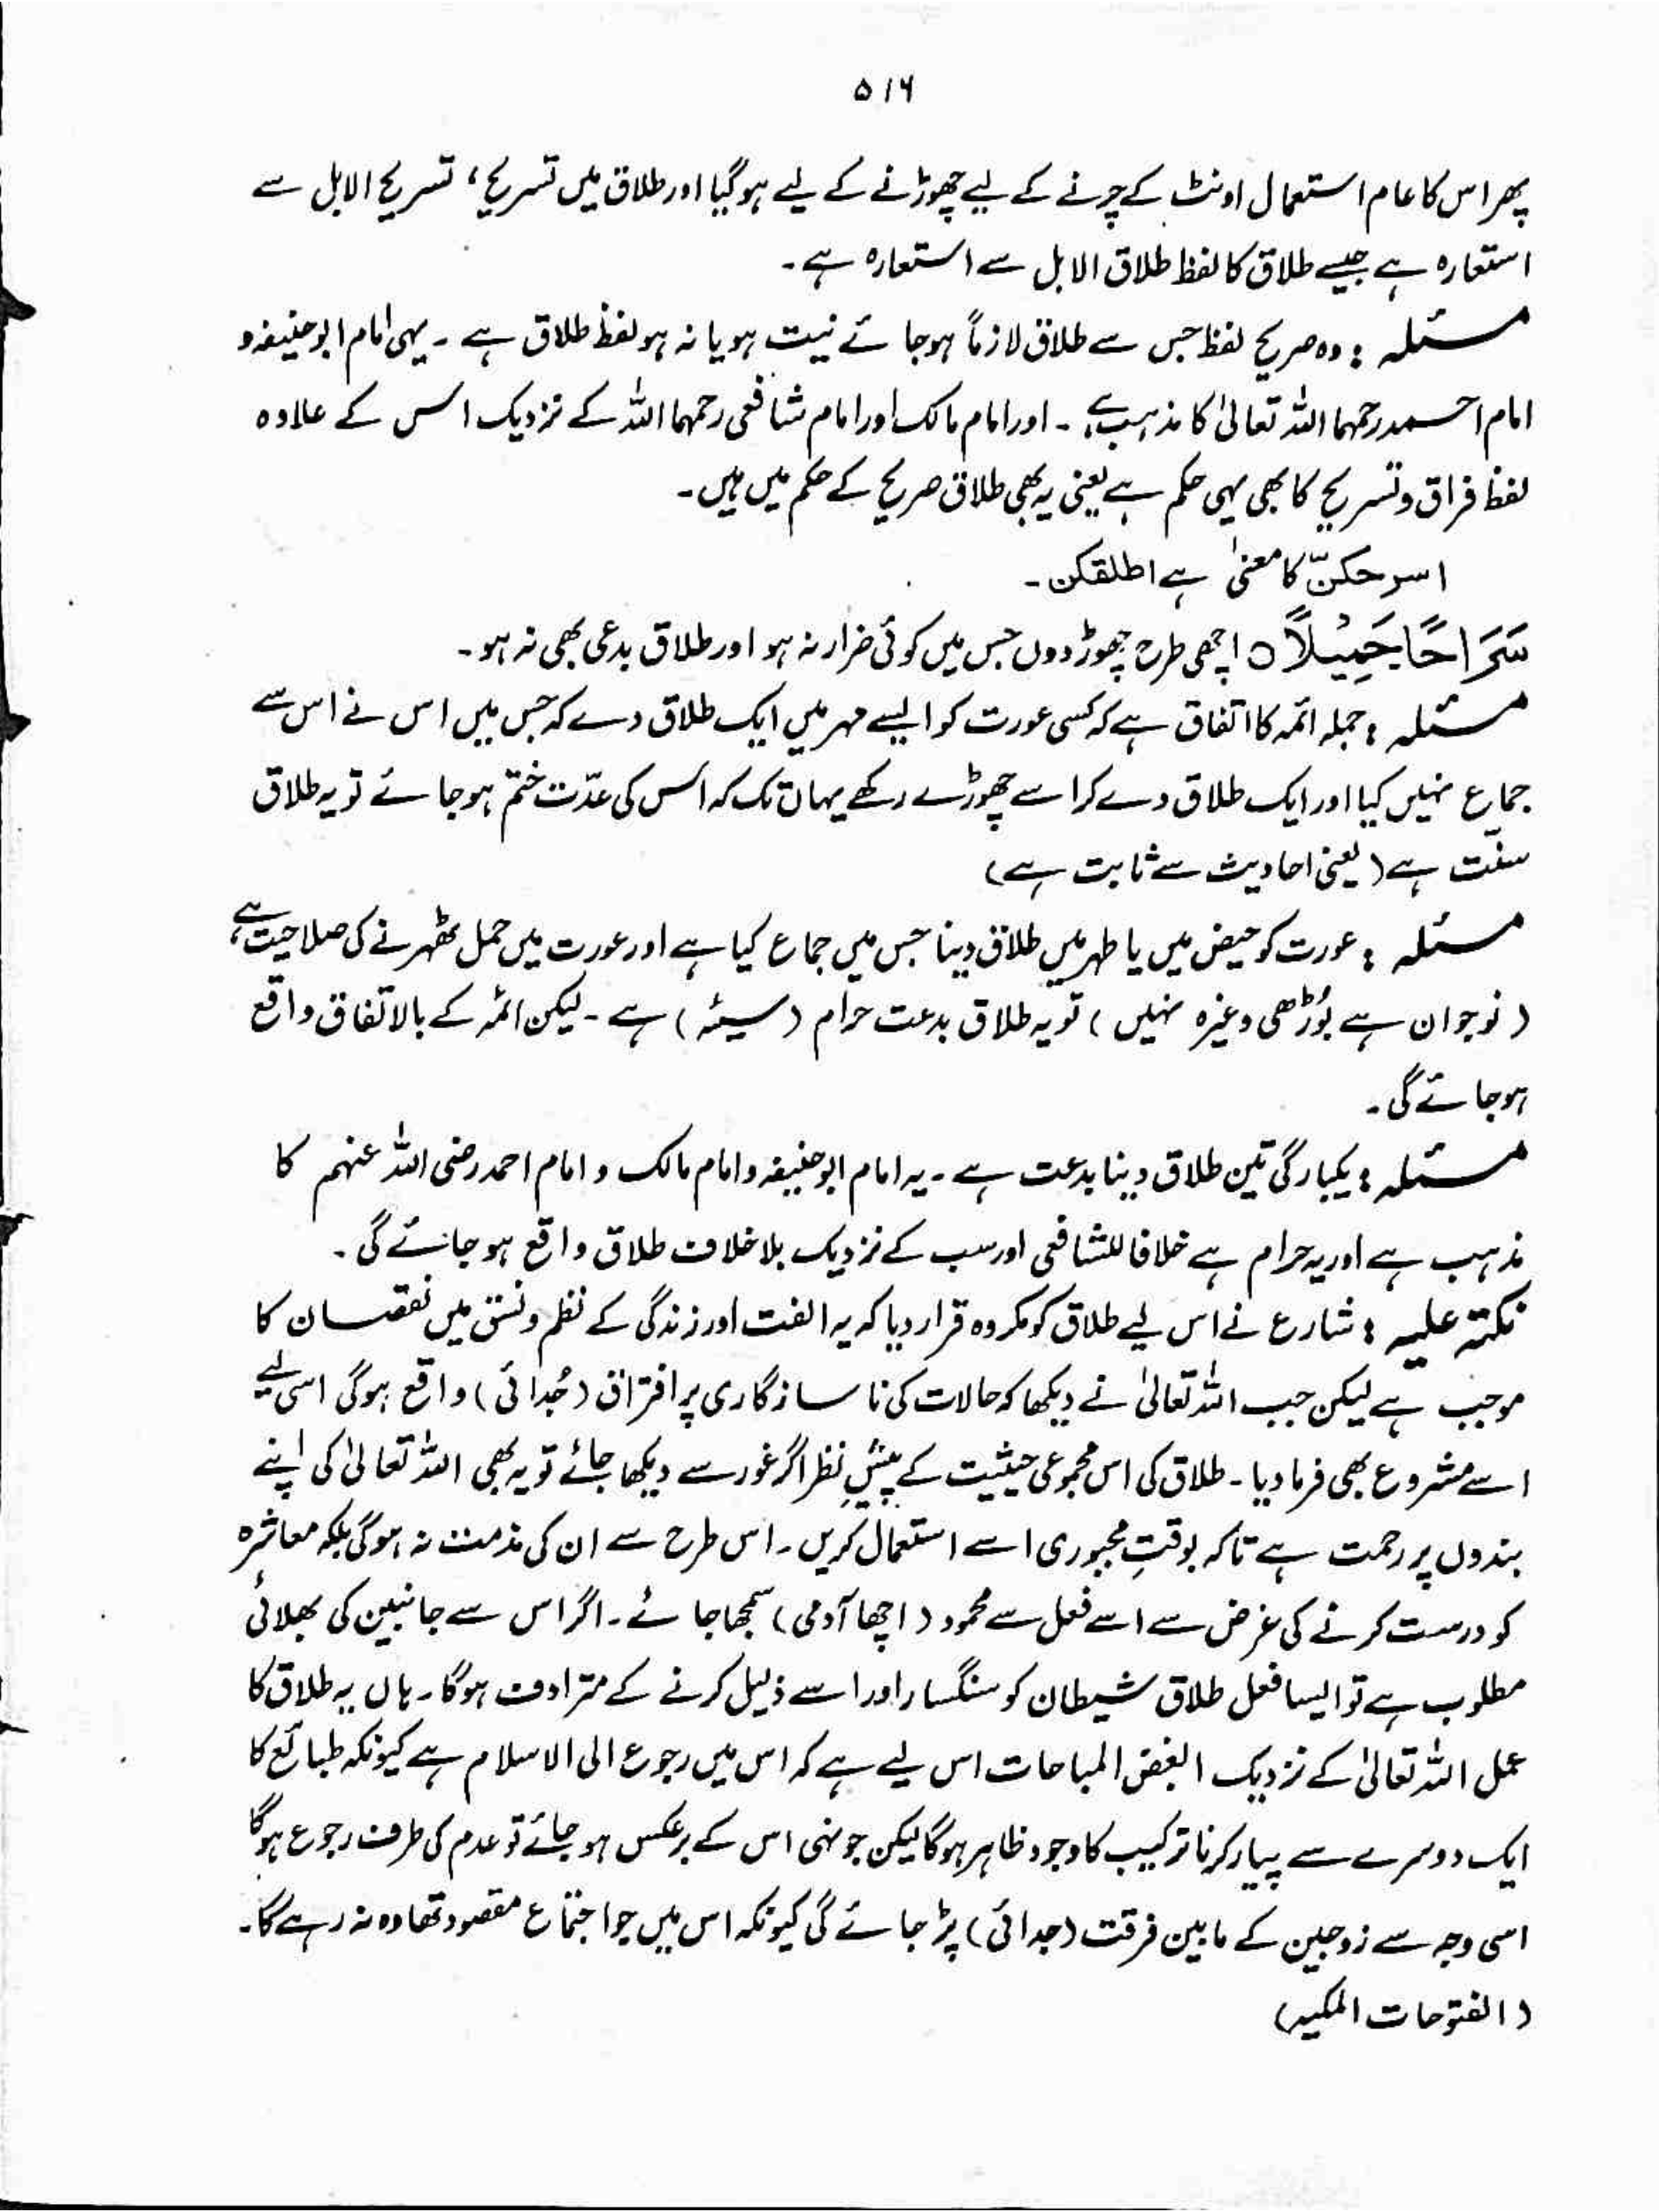 ۵۱۶
پھر اس کا عام استعمال اونٹ کے چرنے کے لیے چھوڑنے کے لیے ہوگیا اور طلاق میں تسریح، تسریح الابل سے
استعارہ ہے جیسے طلاق کا لفظ طلاق الابل سے استعارہ ہے۔
مسئلہ : وہ صریح لفظ جس سے طلاق لازماً ہوجائے نیت ہو یا نہ ہو لفظ طلاق ہے ۔ یہی امام ابوحنیفہ و
امام احمد رحمہما اللہ تعالیٰ کا مذہب ہے ۔ اور امام مالک اور امام شافعی رحمہما اللہ کے نزدیک اس کے علاوہ
لفظ فراق و تسریح کا بھی یہی حکم ہے یعنی یہ بھی طلاق صریح کے حکم میں ہیں۔
اسرحکنّ کا معنیٰ ہے اطلقکن ۔
سَرَاحًا جَمِیْلًا ○ اچھی طرح چھوڑ دوں جس میں کوئی ضرار نہ ہو اور طلاق بدعی بھی نہ ہو ۔
مسئلہ : جملہ ائمہ کا اتفاق ہے کہ کسی عورت کو ایسے مہر میں ایک طلاق دے کہ جس میں اس نے اس سے
جماع نہیں کیا اور ایک طلاق دے کر اسے چھوڑے رکھے یہاں تک کہ اس کی عدّت ختم ہوجائے تو یہ طلاق
سنّت ہے (یعنی احادیث سے ثابت ہے)
مسئلہ : عورت کو حیض میں یا طہر میں طلاق دینا جس میں جماع کیا ہے اور عورت میں حمل ٹھہرنے کی صلاحیت ہے،
(نوجوان ہے بُوڑھی وغیرہ نہیں) تو یہ طلاق بدعت حرام (سیئہ) ہے ۔ لیکن ائمہ کے بالاتفاق واقع
ہوجائے گی ۔
مسئلہ : یکبارگی تین طلاق دینا بدعت ہے ۔ یہ امام ابوحنیفہ و امام مالک و امام احمد رضی اللہ عنہم کا
مذہب ہے اور یہ حرام ہے خلافا للشافعی اور سب کے نزدیک بلاخلاف طلاق واقع ہوجائے گی ۔
نکتہ علمیہ : شارع نے اس لیے طلاق کو مکروہ قرار دیا کہ یہ الفت اور زندگی کے نظم و نسق میں نقصان کا
موجب ہے لیکن جب اللہ تعالیٰ نے دیکھا کہ حالات کی ناسازگاری پر افتراق (جُدائی) واقع ہوگی اسی لیے
اسے مشروع بھی فرمادیا ۔ طلاق کی اس مجموعی حیثیت کے پیشِ نظر اگر غور سے دیکھا جائے تو یہ بھی اللہ تعالیٰ کی اپنے
بندوں پر رحمت ہے تاکہ بوقتِ مجبوری اسے استعمال کریں ۔ اس طرح سے ان کی مذمت نہ ہوگی بلکہ معاشرہ
کو درست کرنے کی غرض سے اسے فعل سے محمود (اچھا آدمی) سمجھا جائے ۔ اگر اس سے جانبین کی بھلائی
مطلوب ہے تو ایسا فعل طلاق شیطان کو سنگسار اور اسے ذلیل کرنے کے مترادف ہوگا ۔ ہاں یہ طلاق کا
عمل اللہ تعالیٰ کے نزدیک ابغض المباحات اس لیے ہے کہ اس میں رجوع الی الاسلام ہے کیونکہ طبائع کا
ایک دوسرے سے پیار کرنا ترکیب کا وجود ظاہر ہوگا لیکن جونہی اس کے برعکس ہوجائے تو عدم کی طرف رجوع ہوگا
اسی وجہ سے زوجین کے مابین فرقت (جدائی) پڑجائے گی کیونکہ اس میں جو اجتماع مقصود تھا وہ نہ رہے گا۔
(الفتوحات المکیہ)